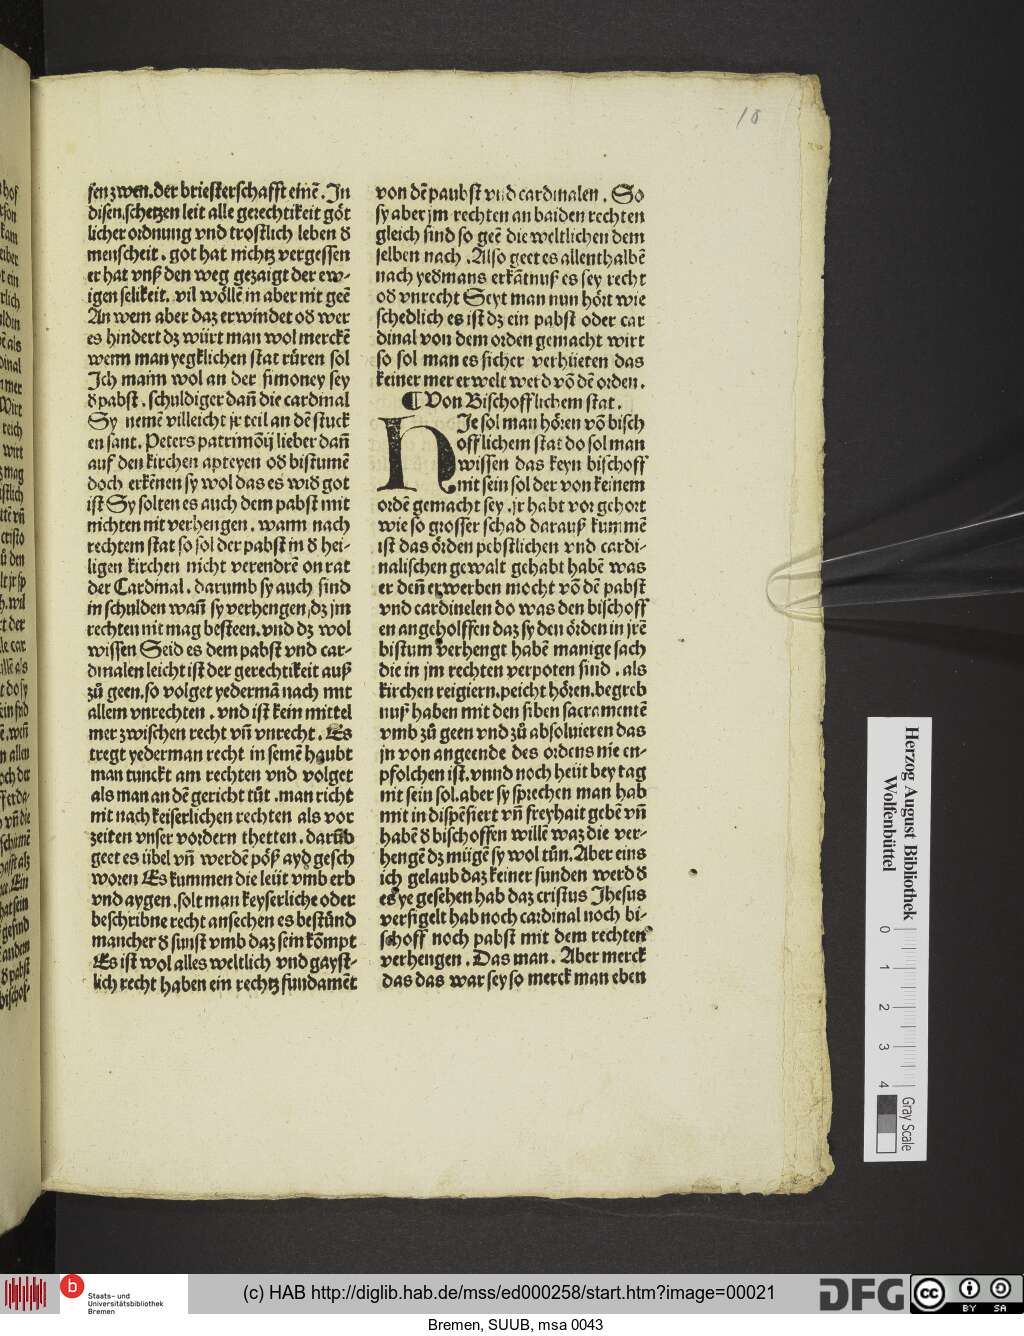 18
sen zwen. der briesterschafft einē. In
disen schetzen leit alle gerechtikeit göt
licher ordnung vnd trostlich leben d
menscheit. got hat nichtz vergessen
er hat vnß den weg gezaigt der ew-
igen selikeit. vil wöllē in aber nit geē
An wem aber daz erwindet od wer
es hindert dz würt man wol merckē
wenn man yegklichen stat rüren sol
Ich main wol an der simoney sey
d pabst. schuldiger dañ die cardinal
Sy nemē villeicht jr teil an dē stuck
en sant. Peters patrimōij lieber dañ
auf den kirchen apteyen od bistumē
doch erkēnen sy wol das es wid got
ist Sy solten es auch dem pabst mit
nichten nit verhengen. wann nach
rechtem stat so sol der pabst in d hei-
ligen kirchen nicht verendrē on rat
der Cardinal. darumb sy auch sind
in schulden wañ sy verhengen, dz jm
rechten nit mag besteen. vnd dz wol
wissen Seid es dem pabst vnd car-
dinalen leicht ist der gerechtikeit auß
zů geen. so volget yedermā nach mit
allem vnrechten. vnd ist kein mittel
mer zwischen recht vñ vnrecht. Es
tregt yederman recht in seinē haubt
man tunckt am rechten vnd volget
als man an dē gericht tůt. man richt
mit nach keiserlichen rechten als vor
zeiten vnser vordern thetten. darūb
geet es übel vñ werdē pöß ayd gesch
woren Es kummen die leüt vmb erb
vnd aygen. solt man keyserliche oder
beschribne recht ansechen es bestünd
mancher d sunst vmb daz sein kōmpt
Es ist wol alles weltlich vnd gayst-
lich recht haben ein rechtz fundamēt
von dē paubst vnd cardinalen. So
sy aber jm rechten an baiden rechten
gleich sind so geē die weltlichen dem
selben nach. Also geet es allenthalbē
nach yedmans erkātnuß es sey recht
od vnrecht Seyt man nun hört wie
schedlich es ist dz ein pabst oder car
dinal von dem orden gemacht wirt
so sol man es sicher verhüeten das
keiner mer erwelt werd vō dē orden.
¶ Von Bischofflichem stat.
HJe sol man hören vō bisch
offlichem stat do sol man
wissen das keyn bischoff
nit sein sol der von keinem
ordē gemacht sey. jr habt vor gehort
wie so grosser schad darauß kummē
ist das örden pebstlichen vnd cardi-
nalischen gewalt gehabt habē was
er deñ erwerben mocht vō dē pabst
vnd cardinelen do was den bischoff
en angeholffen daz sy den örden in jrē
bistum verhengt habē manige sach
die in jm rechten verpoten sind. als
kirchen reigiern. peicht hören. begreb
nuß haben mit den siben sacramentē
vmb zů geen vnd zů absoluieren das
jn von angeende des ordens nie en-
pfolchen ist. vnnd noch heüt bey tag
nit sein sol. aber sy sprechen man hab
mit in dispēsiert vñ freyhait gebē vñ
habē d bischoffen willē waz die ver-
hengē dz mügē sy wol tün. Aber eins
ich gelaub daz keiner funden werd d
es ye gesehen hab daz cristus Jhesus
versigelt hab noch cardinal noch bi-
schoff noch pabst mit dem rechten
verhengen. Das man. Aber merck
das das war sey so merck man eben
Herzog August Bibliothek
Wolfenbüttel
0 1 2 3 4
Gray Scale
Staats- und
Universitätsbibliothek
Bremen
(c) HAB http://diglib.hab.de/mss/ed000258/start.htm?image=00021
DFG
cc BY SA
Bremen, SUUB, msa 0043